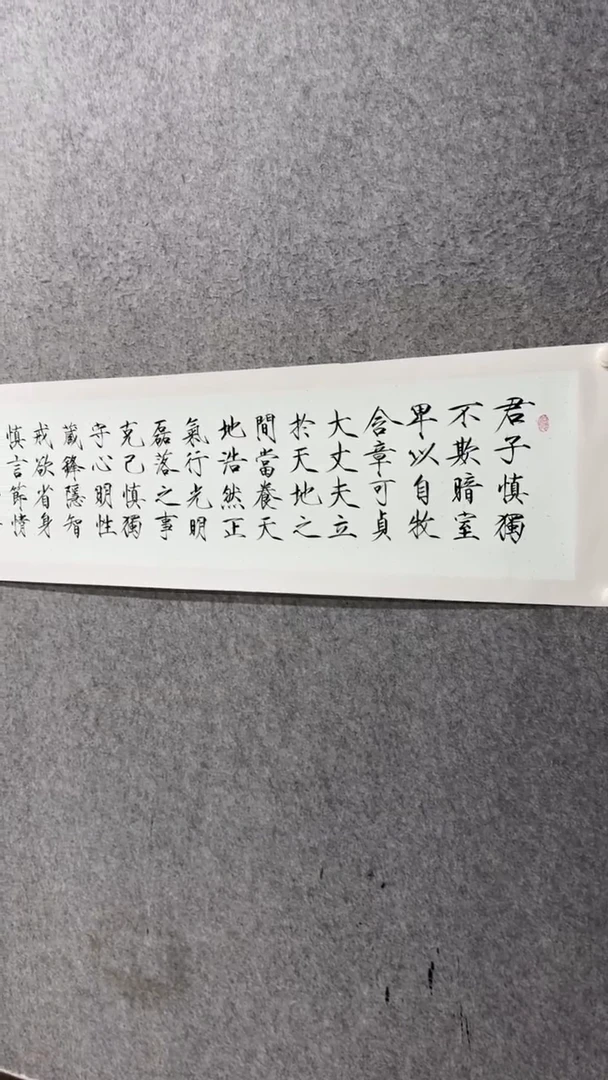 君子慎獨
不欺暗室
卑以自牧
含章可貞
大丈夫立
於天地之
間當養天
地浩然正
氣行光明
磊落之事
克己慎獨
守心明性
藏鋒隱智
戒欲省身
慎言節情